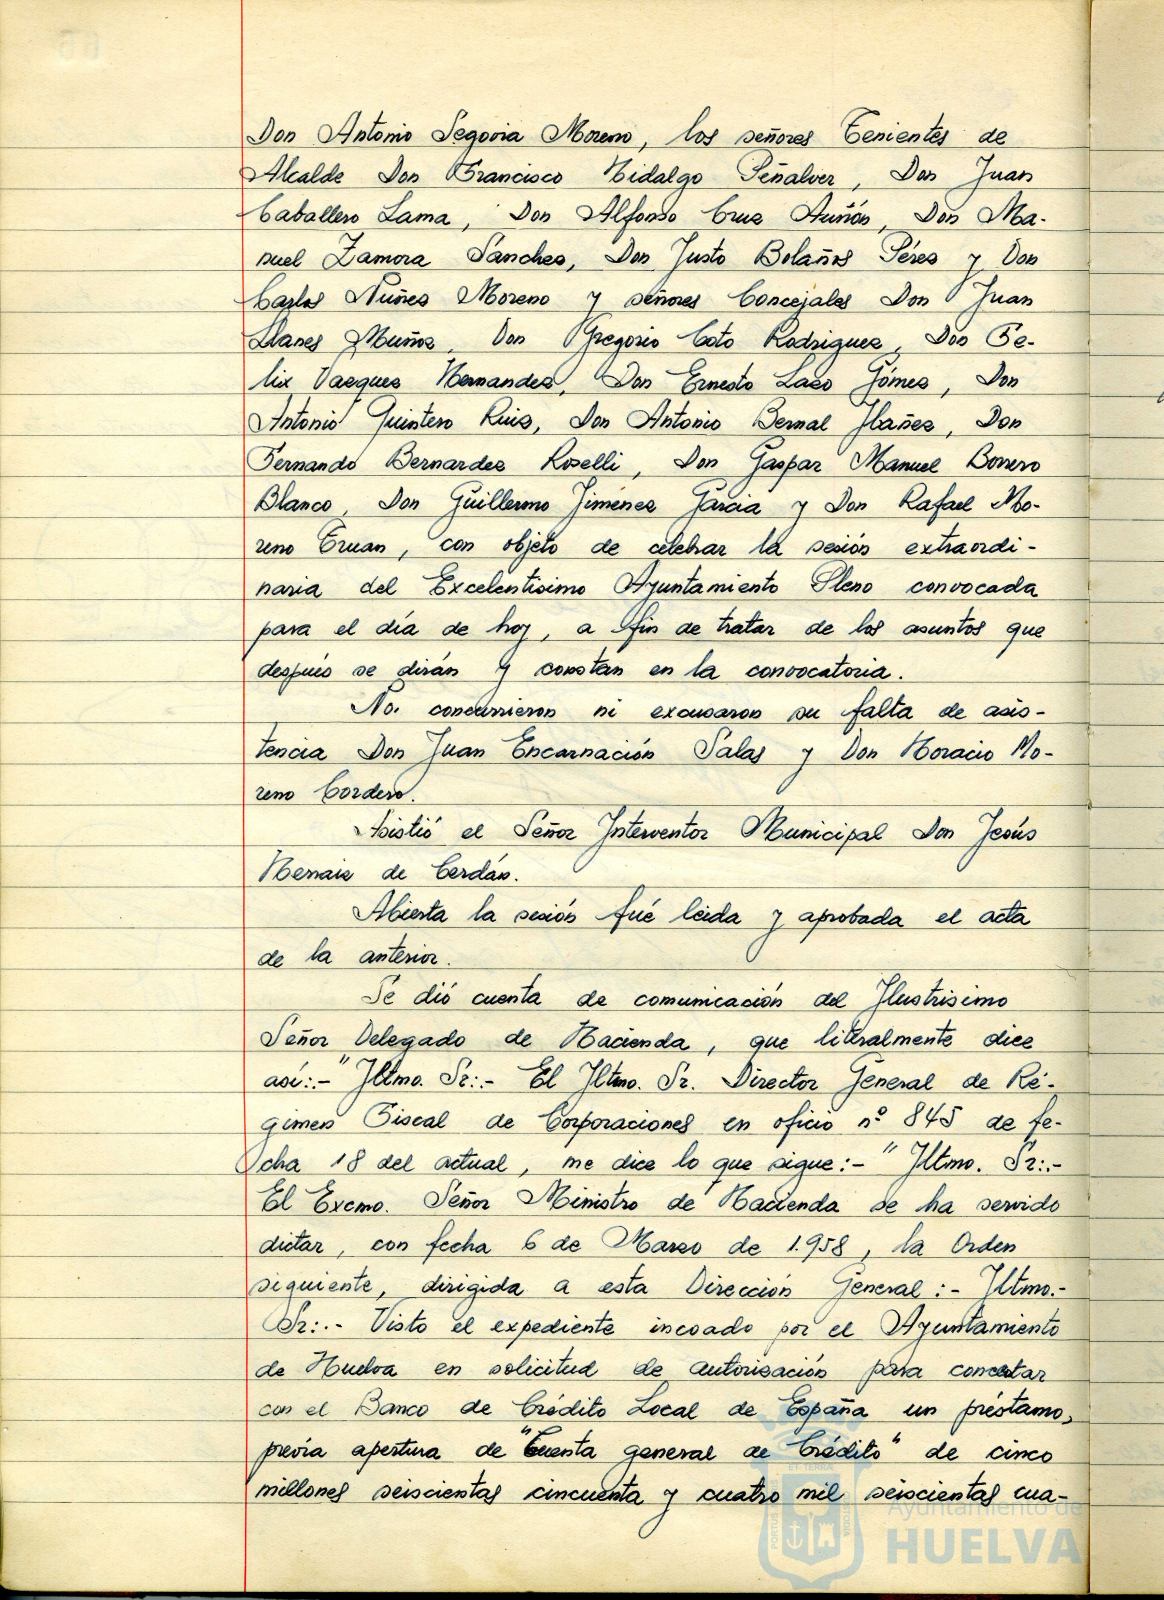 Don Antonio Segovia Moreno, los señores Tenientes de
Alcalde Don Francisco Hidalgo Peñalver, Don Juan
Caballero Lama, Don Alfonso Cruz Auñón, Don Ma-
nuel Zamora Sanchez, Don Justo Bolaños Pérez y Don
Carlos Nuñez Moreno y señores Concejales Don Juan
Llanes Muñoz, Don Gregorio Coto Rodriguez, Don Fe-
lix Vazquez Hernandez, Don Ernesto Lazo Gómez, Don
Antonio Quintero Ruiz, Don Antonio Bernal Ibañez, Don
Fernando Bernardez Roselli, Don Gaspar Manuel Borrero
Blanco, Don Guillermo Jimenez Garcia y Don Rafael Mo-
reno Eruan, con objeto de celebrar la sesión extraordi-
naria del Excelentísimo Ayuntamiento Pleno convocada
para el día de hoy, a fin de tratar de los asuntos que
después se dirán y constan en la convocatoria.
No. concurrieron ni excusaron su falta de asis-
tencia Don Juan Encarnación Salas y Don Horacio Mo-
reno Cordero.
Asistió el Señor Interventor Municipal Don Jesús
Hernaiz de Cerdán.
Abierta la sesión fué leida y aprobada el acta
de la anterior.
Se dió cuenta de comunicación del Ilustrisimo
Señor Delegado de Hacienda, que literalmente dice
asi:.- "Iltmo. Sr:.- El Iltmo. Sr. Director General de Ré-
gimen Fiscal de Corporaciones en oficio nº 845 de fe-
cha 18 del actual, me dice lo que sigue:- "Iltmo. Sr:.-
El Excmo. Señor Ministro de Hacienda se ha servido
dictar, con fecha 6 de Marzo de 1.958, la Orden
siguiente, dirigida a esta Dirección General:- Iltmo.-
Sr:.- Visto el expediente incoado por el Ayuntamiento
de Huelva en solicitud de autorización para concertar
con el Banco de Crédito Local de España un préstamo,
previa apertura de "Cuenta general de Crédito" de cinco
millones seiscientas cincuenta y cuatro mil seiscientas cua-
Ayuntamiento de
HUELVA